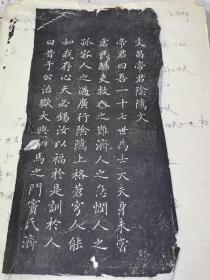 文昌帝君陰隲文
帝君曰吾一十七世為士大夫身未嘗
虐民酷吏救人之難濟人之急憫人之
孤容人之過廣行陰隲上格蒼穹人能
如我存心天必錫汝以福於是訓於人
曰昔于公治獄大興駟馬之門竇氏濟